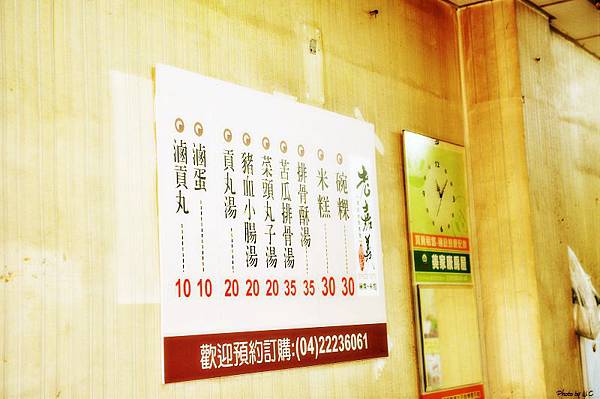 老嘉義
碗粿 30
米糕 30
排骨酥湯 35
苦瓜排骨湯 35
菜頭丸子湯 20
豬血小腸湯 20
貢丸湯 20
滷蛋 10
滷貢丸 10
歡迎預約訂購:(04)22236061
12